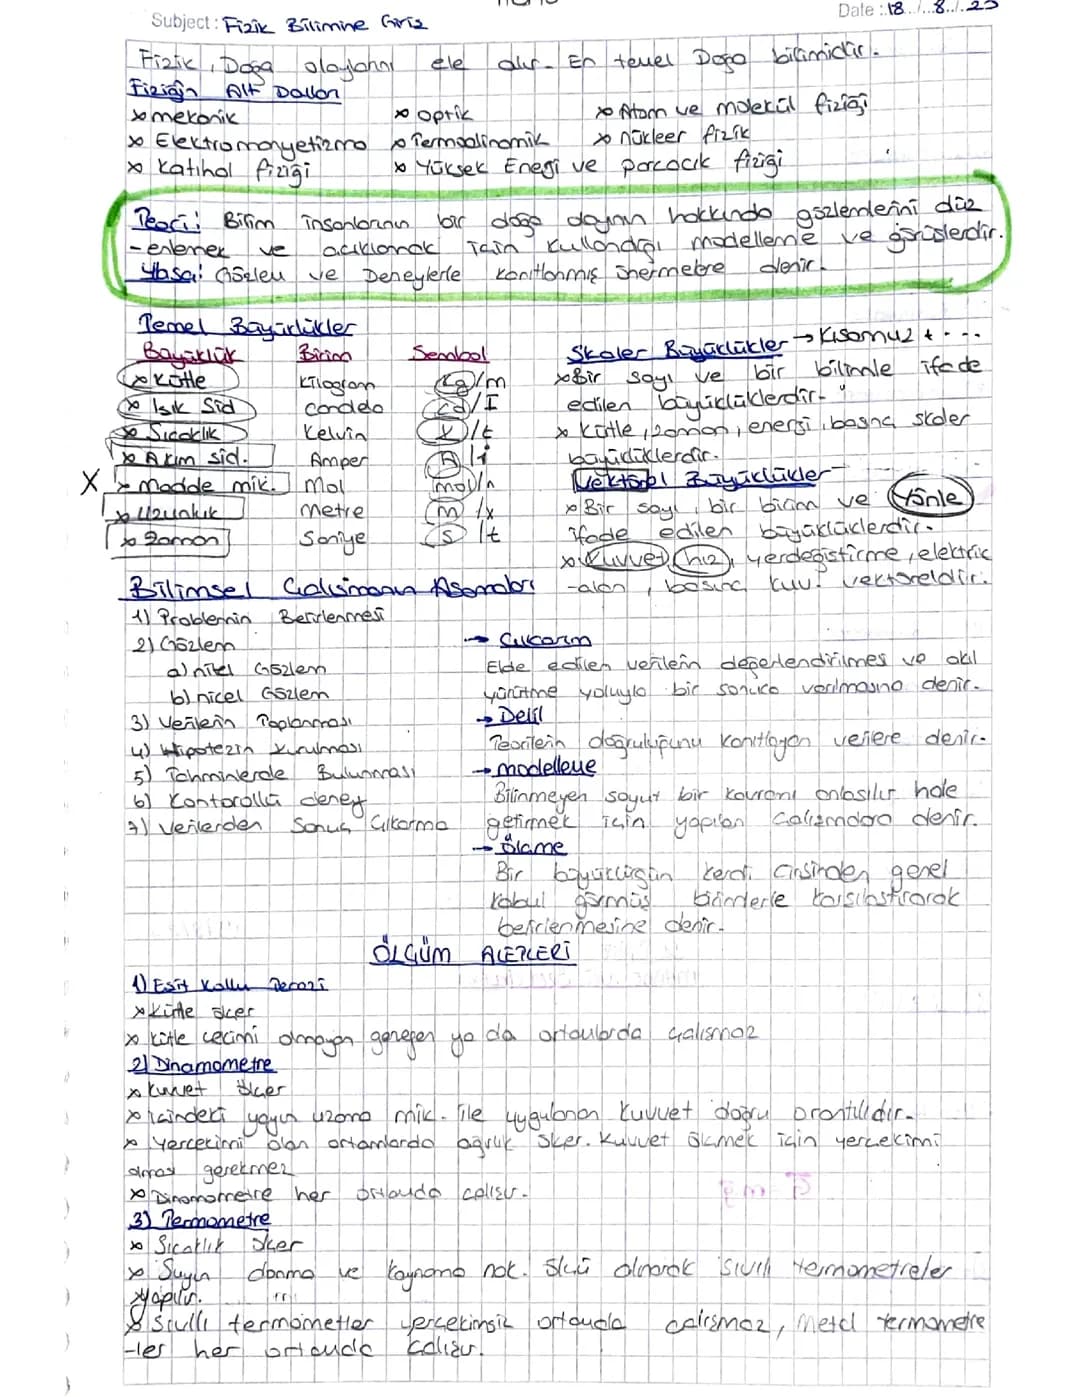 Subject: Fizik Bilimine Giriş
Date: 18./.8./.23
Fizik, Doğa olaylarını ele alır. En temel Doğa bilimidir.
Fiziğin Alt Dalları
x mekanik x optik x Atom ve molekül fiziği
x Elektromanyetizma x Termodinamik x nükleer fizik
x Katıhal fiziği x Yüksek Enerji ve parçacık fiziği
Teori: Bilim insanlarının bir doğa olayının hakkında gözlemlerini düz
-enlemek ve açıklamak için kullandığı modelleme ve görüşlerdir.
Yasa: Gözlem ve Deneylerle kanıtlanmış önermelere denir.
Temel Büyüklükler
Büyüklük Birim Sembol
x Kütle Kilogram kg/m
x Işık Şid candela cd/I
x Sıcaklık Kelvin K/t
x Akım şid. Amper A/i
X x Madde mik. Mol mol/n
x Uzunluk metre m/x
x Zaman Saniye s/t
Skaler Büyüklükler → Kısamuz + - ...
x Bir sayı ve bir birimle ifade
edilen büyüklüklerdir.
x Kütle, zaman, enerji, basınç skaler
büyüklüklerdir.
Vektörel Büyüklükler
x Bir sayı, bir birim ve Yönle
ifade edilen büyüklüklerdir.
x Kuvvet, hız, yerdeğiştirme, elektrik
-alan, basınç kuv. vektöreldir.
Bilimsel Çalışmanın Aşamaları
1) Problemin Berirlenmesi
2) Gözlem
a) nitel Gözlem
b) nicel Gözlem
3) Verilerin Toplanması
4) Hipotezin Kurulması
5) Tahminlerde Bulunması
6) Kontorollü deney
7) Verilerden Sonuç Çıkarma
→ Çıkarım
Elde edilen verilerin değerlendirilmes ve akıl
yürütme yoluyla bir sonuca varılmasına denir.
→ Delil
Teorilerin doğruluğunu kanıtlayan verilere denir.
→ modelleme
Bilinmeyen soyut bir kavramı anlaşılır hale
getirmek için yapılan çalışmalara denir.
→ Ölçme
Bir büyüklüğün kendi cinsinden genel
kabul görmüş birimlerle karşılaştırarak
belirlenmesine denir.
ÖLÇÜM ALETLERİ
1) Eşit Kollu Terazi
x Kütle ölçer
x kütle çekimi olmayan gezegen ya da ortamlarda çalışmaz
2) Dinamometre
x Kuvvet ölçer
x içindeki yayın uzama mik. ile uygulanan kuvvet doğru orantılıdır.
x Yerçekimi olan ortamlarda ağırlık ölçer. Kuvvet ölçmek için yerçekimi
olması gerekmez
x Dinamometre her ortamda çalışır.
3) Termometre
x Sıcaklık ölçer
x Suyun donma ve kaynama nok. ölçü alınarak sıvılı termometreler
yapılır.
x Sıvılı termometler yerçekimsiz ortamda çalışmaz, metal termometre
-ler her ortamda çalışır.